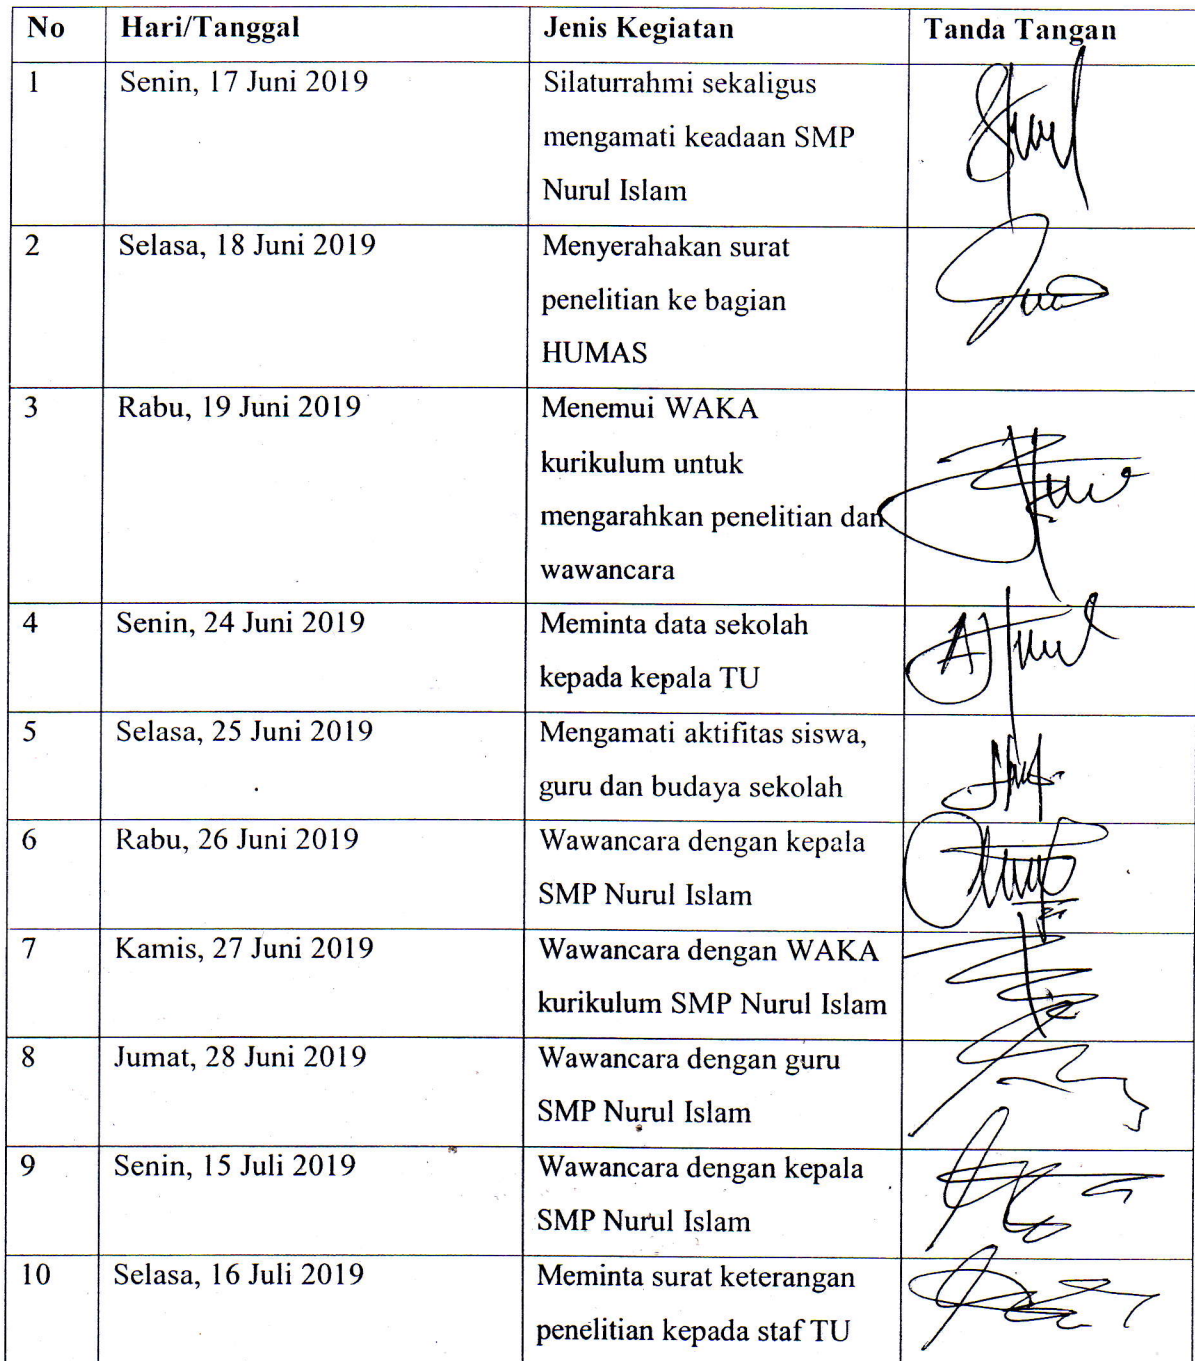 No Hari/Tanggal Jenis Kegiatan Tanda Tangan
1 Senin, 17 Juni 2019 Silaturrahmi sekaligus
mengamati keadaan SMP
Nurul Islam
2 Selasa, 18 Juni 2019 Menyerahakan surat
penelitian ke bagian
HUMAS
3 Rabu, 19 Juni 2019 Menemui WAKA
kurikulum untuk
mengarahkan penelitian dan
wawancara
4 Senin, 24 Juni 2019 Meminta data sekolah
kepada kepala TU
5 Selasa, 25 Juni 2019 Mengamati aktifitas siswa,
guru dan budaya sekolah
6 Rabu, 26 Juni 2019 Wawancara dengan kepala
SMP Nurul Islam
7 Kamis, 27 Juni 2019 Wawancara dengan WAKA
kurikulum SMP Nurul Islam
8 Jumat, 28 Juni 2019 Wawancara dengan guru
SMP Nurul Islam
9 Senin, 15 Juli 2019 Wawancara dengan kepala
SMP Nurul Islam
10 Selasa, 16 Juli 2019 Meminta surat keterangan
penelitian kepada staf TU